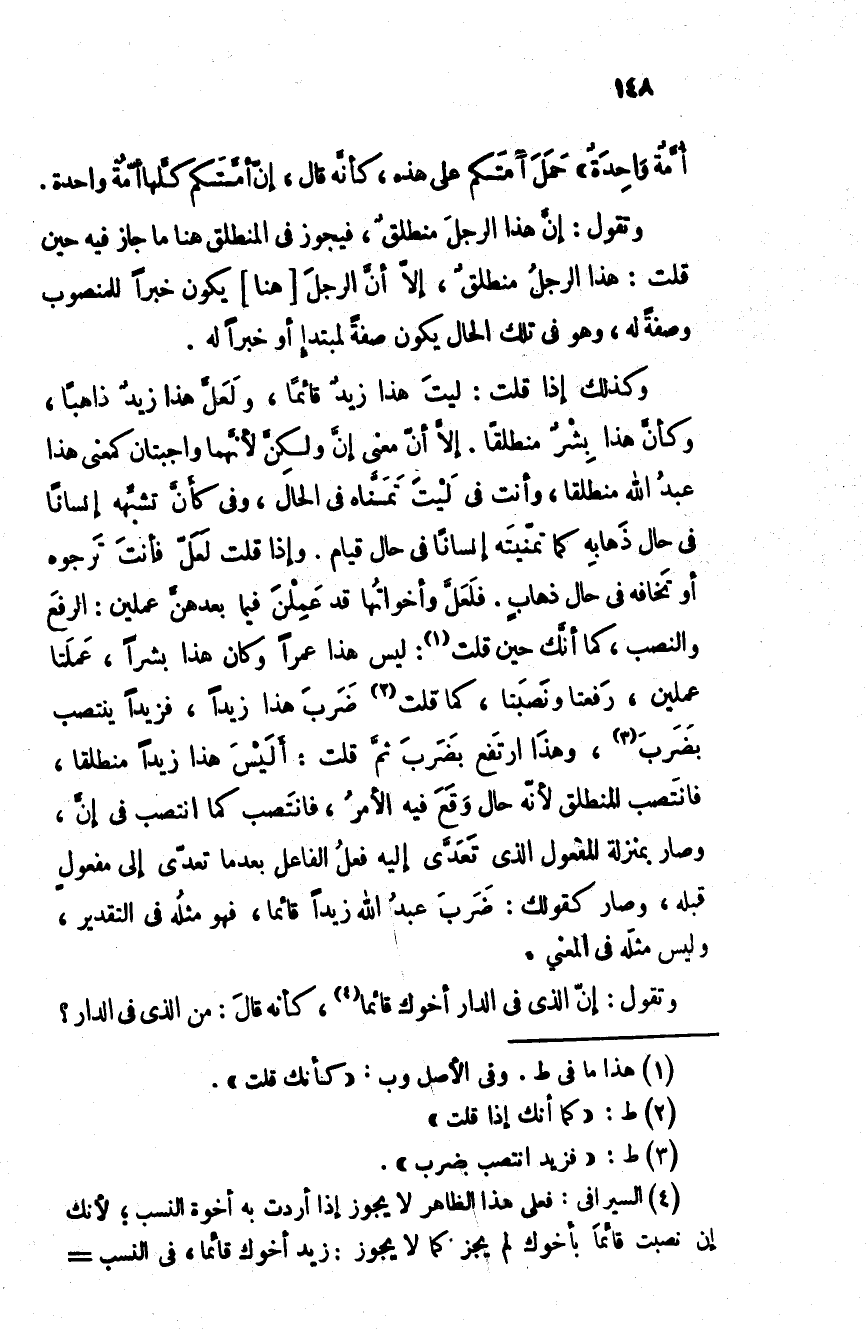 ١٤٨
أُمَّةٌ وَاحِدَةٌ» حَمَلَ أُمّتَكم على هذه ، كأنَّه قال ، إنّ أُمَّتَكم كلَّها أمّةٌ واحدة .
وتقول : إنَّ هذا الرجلَ منطلقٌ ، فيجوز فى المنطلق هنا ما جاز فيه حين
قلت : هذا الرجلُ منطلقٌ ، إلاّ أنَّ الرجلَ [هنا] يكون خبراً للمنصوب
وصفةً له ، وهو فى تلك الحال يكون صفةً لمبتدإٍ أو خبراً له .
وكذلك إذا قلت : ليتَ هذا زيدٌ قائمًا ، ولَعَلَّ هذا زيدٌ ذاهبًا ،
وكأنَّ هذا بِشْرٌ منطلقًا . إلاَّ أنّ معنى إنَّ ولـكِنَّ لأنَّهما واجبتان كمعنى هذا
عبدُ الله منطلقا ، وأنت فى لَيْتَ تَمَنَّاه فى الحال ، وفى كأنَّ تشبِّهه إنسانًا
فى حال ذَهابِهِ كما تمنّيتَه إنسانًا فى حال قيام . وإذا قلت لَعَلّ فأنتَ تَرجوه
أو تَخافه فى حال ذهابٍ . فلَعَلَّ وأخواتُها قد عَمِلْنَ فيما بعدهنَّ عملين : الرفعَ
والنصب ، كما أنَّك حين قلت(١): ليس هذا عمراً وكان هذا بشراً ، عَملَتا
عملين ، رَفعتا ونَصَبَتا ، كما قلت(٢) ضَرَبَ هذا زيداً ، فزيداً ينتصب
بضَرَبَ(٣) ، وهذا ارتَفع بضَرَبَ ثمَّ قلت : أَلَيْسَ هذا زيداً منطلقا ،
فانتَصب المنطلق لأنّه حال وَقَعَ فيه الأمرُ ، فانتَصب كما انتصب فى إنَّ ،
وصار بمنزلة المفعول الذى تَعَدَّى إليه فعلُ الفاعل بعدما تعدّى إلى مفعولٍ
قبله ، وصار كقولك : ضَرَبَ عبدُ الله زيداً قائما ، فهو مثلُه فى التقدير ،
وليس مثلَه فى المعني .
وتقول : إنّ الذى فى الدار أخوك قائما(٤) ، كأنه قالَ : من الذى فى الدار ؟
(١) هذا ما فى ط . وفى الأصل وب : «كأنك قلت» .
(٢) ط : «كما أنك إذا قلت»
(٣) ط : «فزيد انتصب بضرب» .
(٤) السيرافى : فعلى هذا الظاهر لا يجوز إذا أردت به أخوة النسب ؛ لأنك
إن نصبت قائمًا بأخوك لم يجز كما لا يجوز : زيد أخوك قائما ، فى النسب =